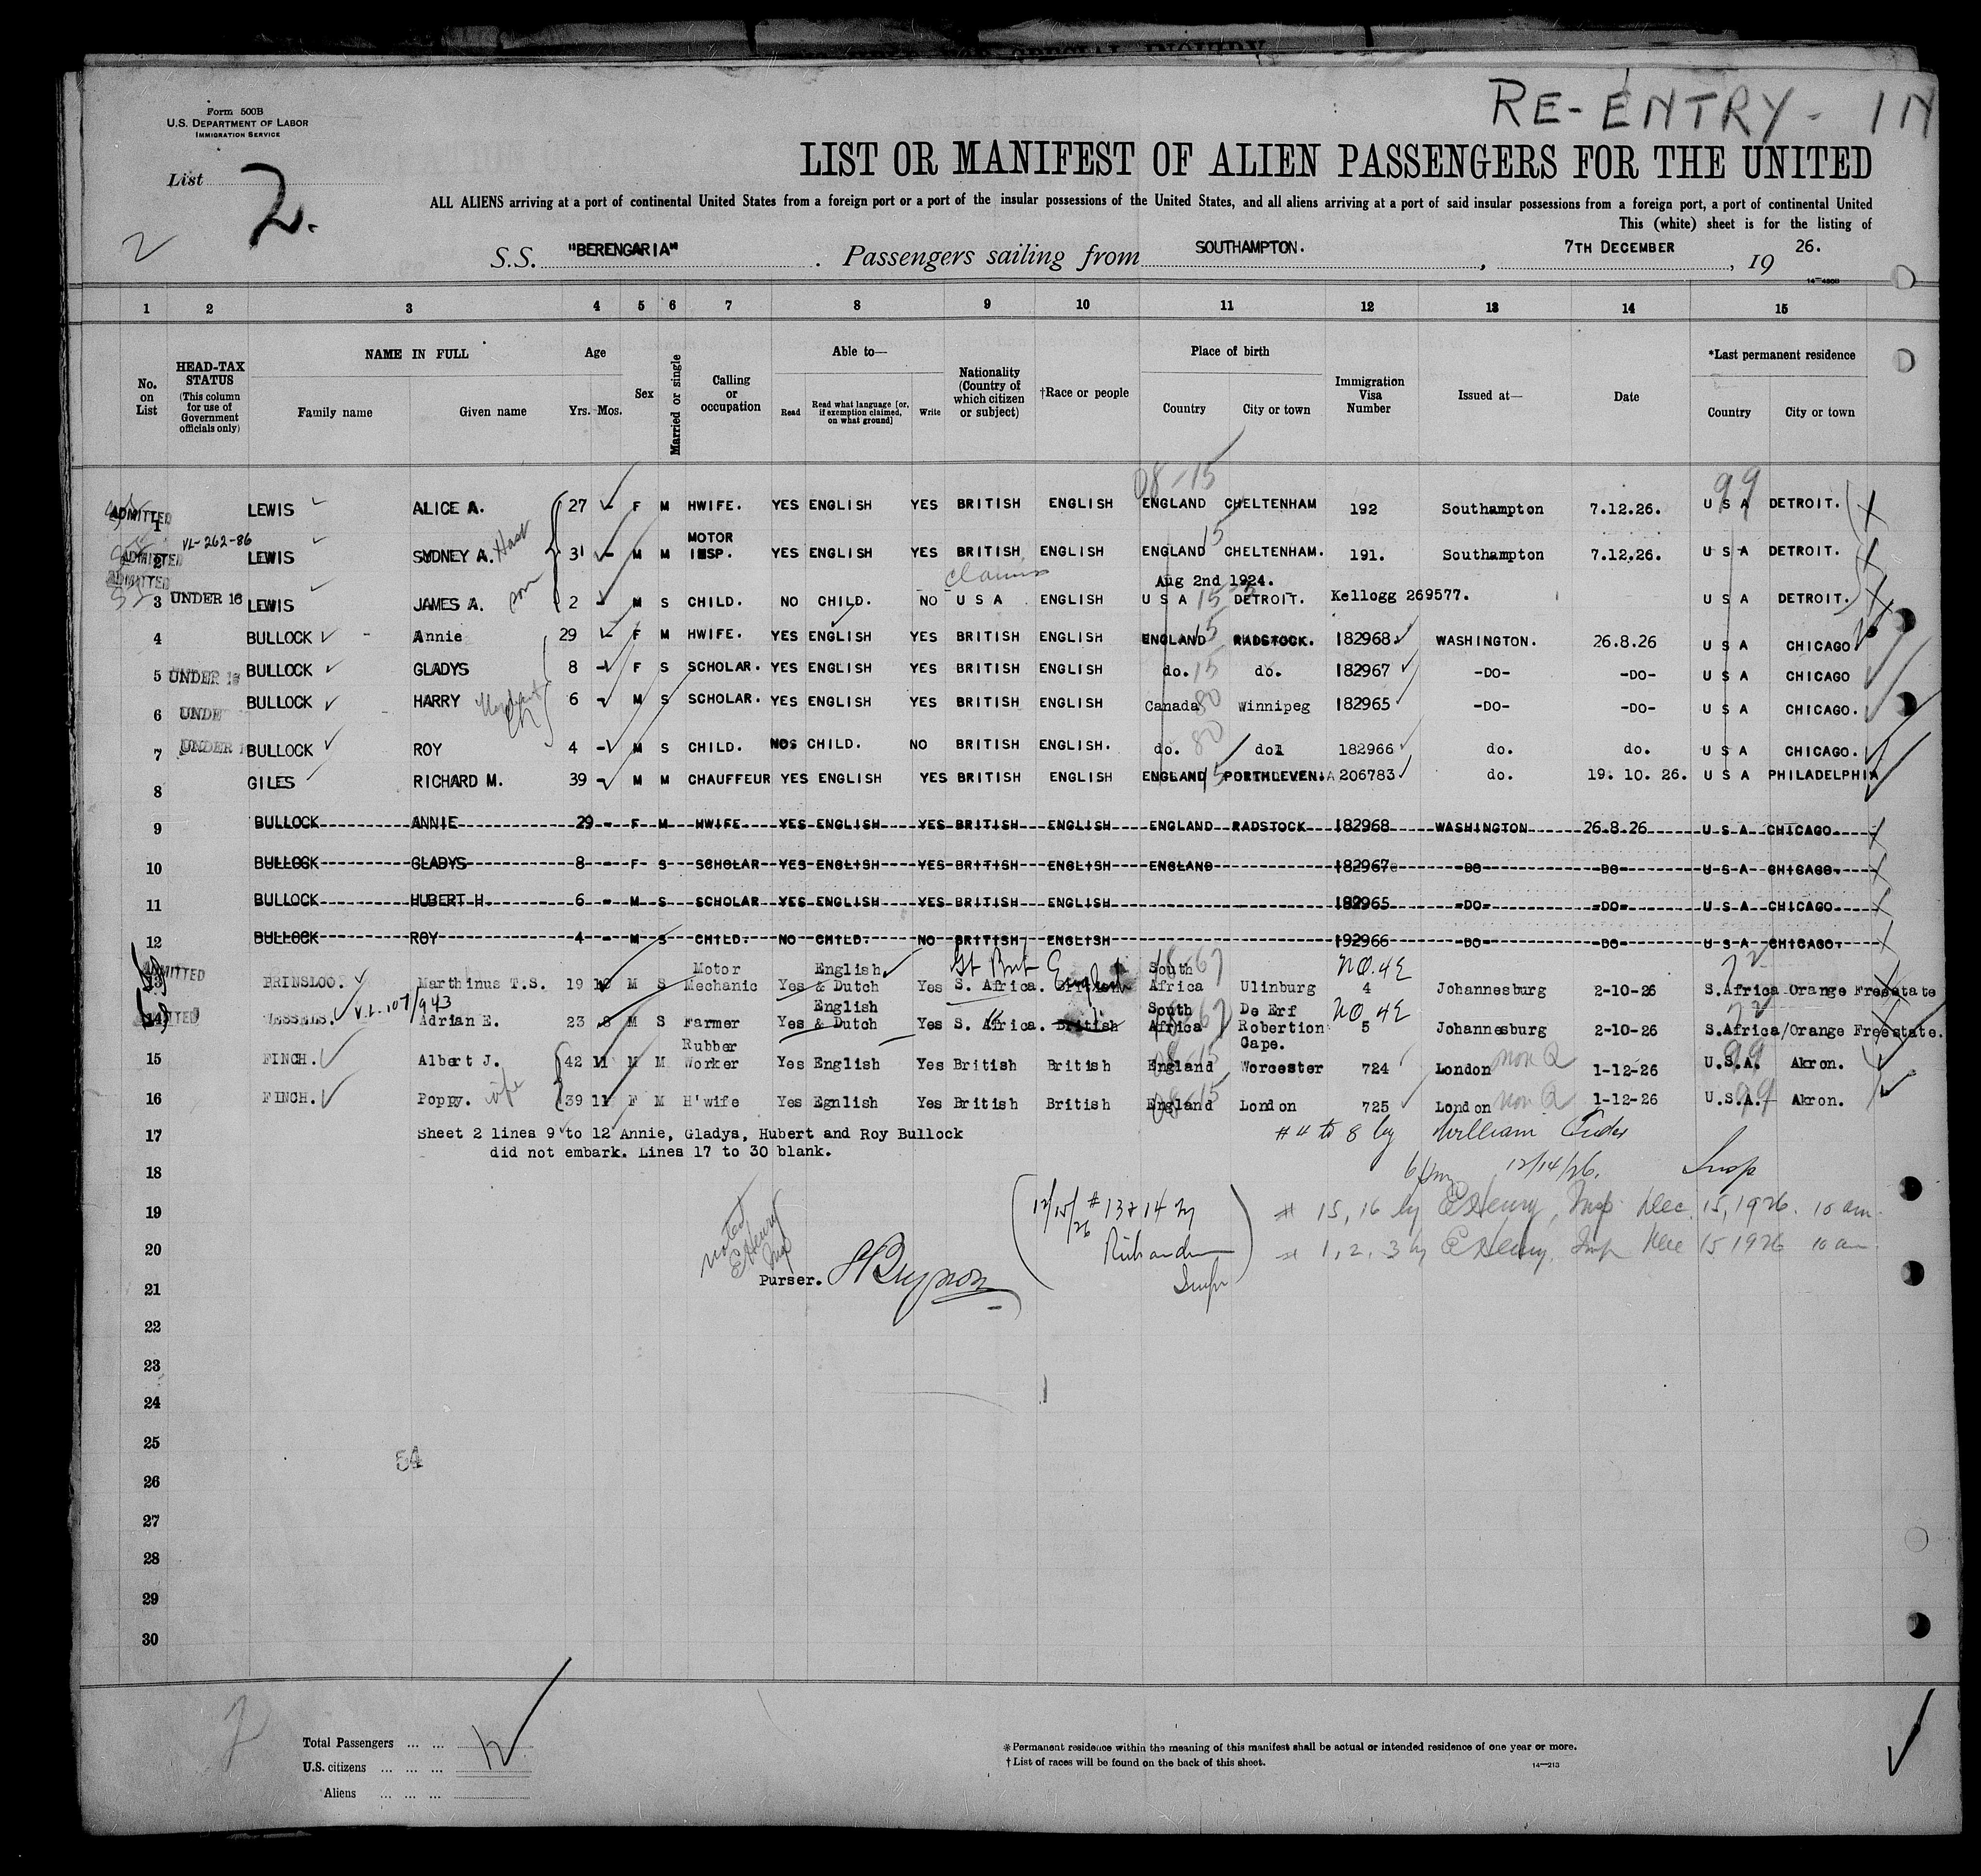 RE-ENTRY - IN
Form 500B
U.S. DEPARTMENT OF LABOR
IMMIGRATION SERVICE
List 2.
2
LIST OR MANIFEST OF ALIEN PASSENGERS FOR THE UNITED
ALL ALIENS arriving at a port of continental United States from a foreign port or a port of the insular possessions of the United States, and all aliens arriving at a port of said insular possessions from a foreign port, a port of continental United
This (white) sheet is for the listing of
S.S. "BERENGARIA" . Passengers sailing from SOUTHAMPTON. , 7TH DECEMBER , 19 26.
1 2 3 4 5 6 7 8 9 10 11 12 13 14 15
No. on List
HEAD-TAX STATUS (This column for use of Government officials only)
NAME IN FULL
Family name
Given name
Age
Yrs. Mos.
Sex
Married or single
Calling or occupation
Able to—
Read
Read what language [or, if exemption claimed, on what ground]
Write
Nationality (Country of which citizen or subject)
†Race or people
Place of birth
Country
City or town
Immigration Visa Number
Issued at—
Date
*Last permanent residence
Country
City or town
08-15 99
ADMITTED 1 LEWIS ALICE A. 27 F M HWIFE. YES ENGLISH YES BRITISH ENGLISH ENGLAND CHELTENHAM 192 Southampton 7.12.26. U S A DETROIT.
ADMITTED 2 VL-262-86 LEWIS SYDNEY A. 31 - M M MOTOR INSP. YES ENGLISH YES BRITISH ENGLISH ENGLAND 15 CHELTENHAM. 191. Southampton 7.12.26. U S A DETROIT.
claims Aug 2nd 1924.
ADMITTED 3 UNDER 16 LEWIS JAMES A. son 2 - M S CHILD. NO CHILD. NO U S A ENGLISH U S A 15 DETROIT. Kellogg 269577. U S A DETROIT.
4 BULLOCK - Annie 29 - F M HWIFE. YES ENGLISH YES BRITISH ENGLISH ENGLAND 15 RADSTOCK. 182968 WASHINGTON. 26.8.26 U S A CHICAGO
5 UNDER 16 BULLOCK GLADYS 8 - F S SCHOLAR. YES ENGLISH YES BRITISH ENGLISH do. 15 do. 182967 -DO- -DO- U S A CHICAGO
6 UNDE BULLOCK HARRY 6 - M S SCHOLAR. YES ENGLISH YES BRITISH ENGLISH Canada 80 Winnipeg 182965 -DO- -DO- U S A CHICAGO.
7 UNDER 1 BULLOCK ROY 4 - M S CHILD. NO CHILD. NO BRITISH ENGLISH. do. 80 do 182966 do. do. U S A CHICAGO.
8 GILES RICHARD M. 39 - M M CHAUFFEUR YES ENGLISH YES BRITISH ENGLISH ENGLAND 15 PORTHLEVEN. 206783 do. 19. 10. 26. U S A PHILADELPHIA
9 BULLOCK ANNIE 29 - F M HWIFE YES ENGLISH YES BRITISH ENGLISH ENGLAND RADSTOCK 182968 WASHINGTON 26.8.26 U S A CHICAGO.
10 BULLOCK GLADYS 8 - F S SCHOLAR YES ENGLISH YES BRITISH ENGLISH ENGLAND 182967 -DO- -DO- U S A CHICAGO.
11 BULLOCK HUBERT H 6 - M S SCHOLAR YES ENGLISH YES BRITISH ENGLISH 182965 -DO- -DO- U S A CHICAGO.
12 BULLOCK ROY 4 - M S CHILD. NO CHILD. NO BRITISH ENGLISH 192966 -DO- -DO- U S A CHICAGO.
ADMITTED 13 PRINSLOO. Marthinus T.S. 19 10 M S Motor Mechanic Yes English & Dutch Yes Gt Brit S. Africa. English South Africa Ulinburg NO.4E 4 Johannesburg 2-10-26 S.Africa Orange Freestate
V.L. 107/943
14 Adrian E. 23 8 M S Farmer Yes English & Dutch Yes S. Africa. British South Africa De Erf Robertion Cape. NO 4E 5 Johannesburg 2-10-26 S.Africa/Orange Freestate.
15 FINCH. Albert J. 42 11 M M Rubber Worker Yes English Yes British British 08-15 England Worcester 724 London non Q 1-12-26 99 U.S.A. Akron.
16 FINCH. Poppy. wife 39 11 F M H'wife Yes Egnlish Yes British British 08-15 England London 725 London non Q 1-12-26 99 U.S.A. Akron.
17 Sheet 2 lines 9 to 12 Annie, Gladys, Hubert and Roy Bullock
did not embark. Lines 17 to 30 blank.
# 4 to 8 by William
18 12/14/26. Insp
19 12/15/26 # 13 & 14 by # 15, 16 by E Henry, Insp Dec. 15, 1926. 10 am.
20 # 1, 2, 3 by E Henry, Insp Dec 15 1926 10 am
noted E Henry Insp
21 Purser.
22
23
24
25
54
26
27
28
29
30
2
Total Passengers ... ... 12
U.S. citizens ... ... ...
Aliens ... ... ...
*Permanent residence within the meaning of this manifest shall be actual or intended residence of one year or more.
†List of races will be found on the back of this sheet.
14—213